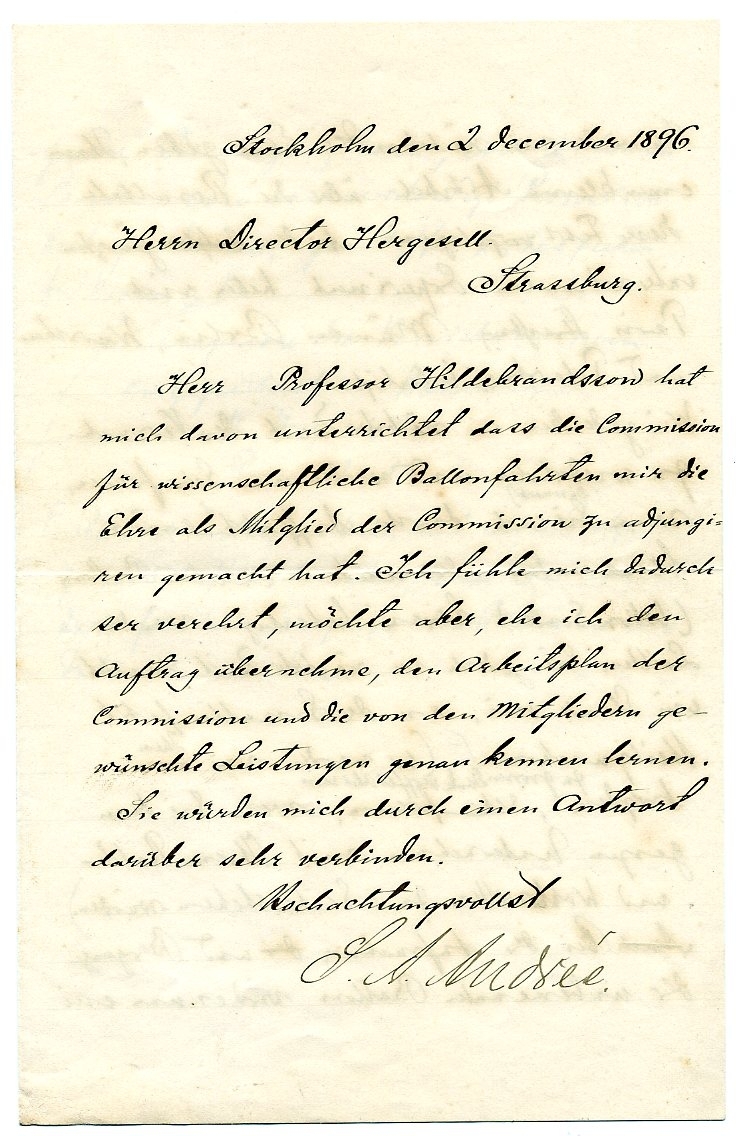 Stockholm den 2 december 1896.
Herrn Director Hergesell.
Strassburg.
Herr Professor Hildebrandsson hat
mich davon unterrichtet dass die Commission
für wissenschaftliche Ballonfahrten mir die
Ehre als Mitglied der Commission zu adjungi=
ren gemacht hat. Ich fühle mich dadurch
ser verehrt, möchte aber, ehe ich den
Auftrag übernehme, den Arbeitsplan der
Commission und die von den Mitgliedern ge-
wünschte Leistungen genau kennen lernen.
Sie würden mich durch einen Antwort
darüber sehr verbinden.
Hochachtungsvollst
S. A. Andrée.